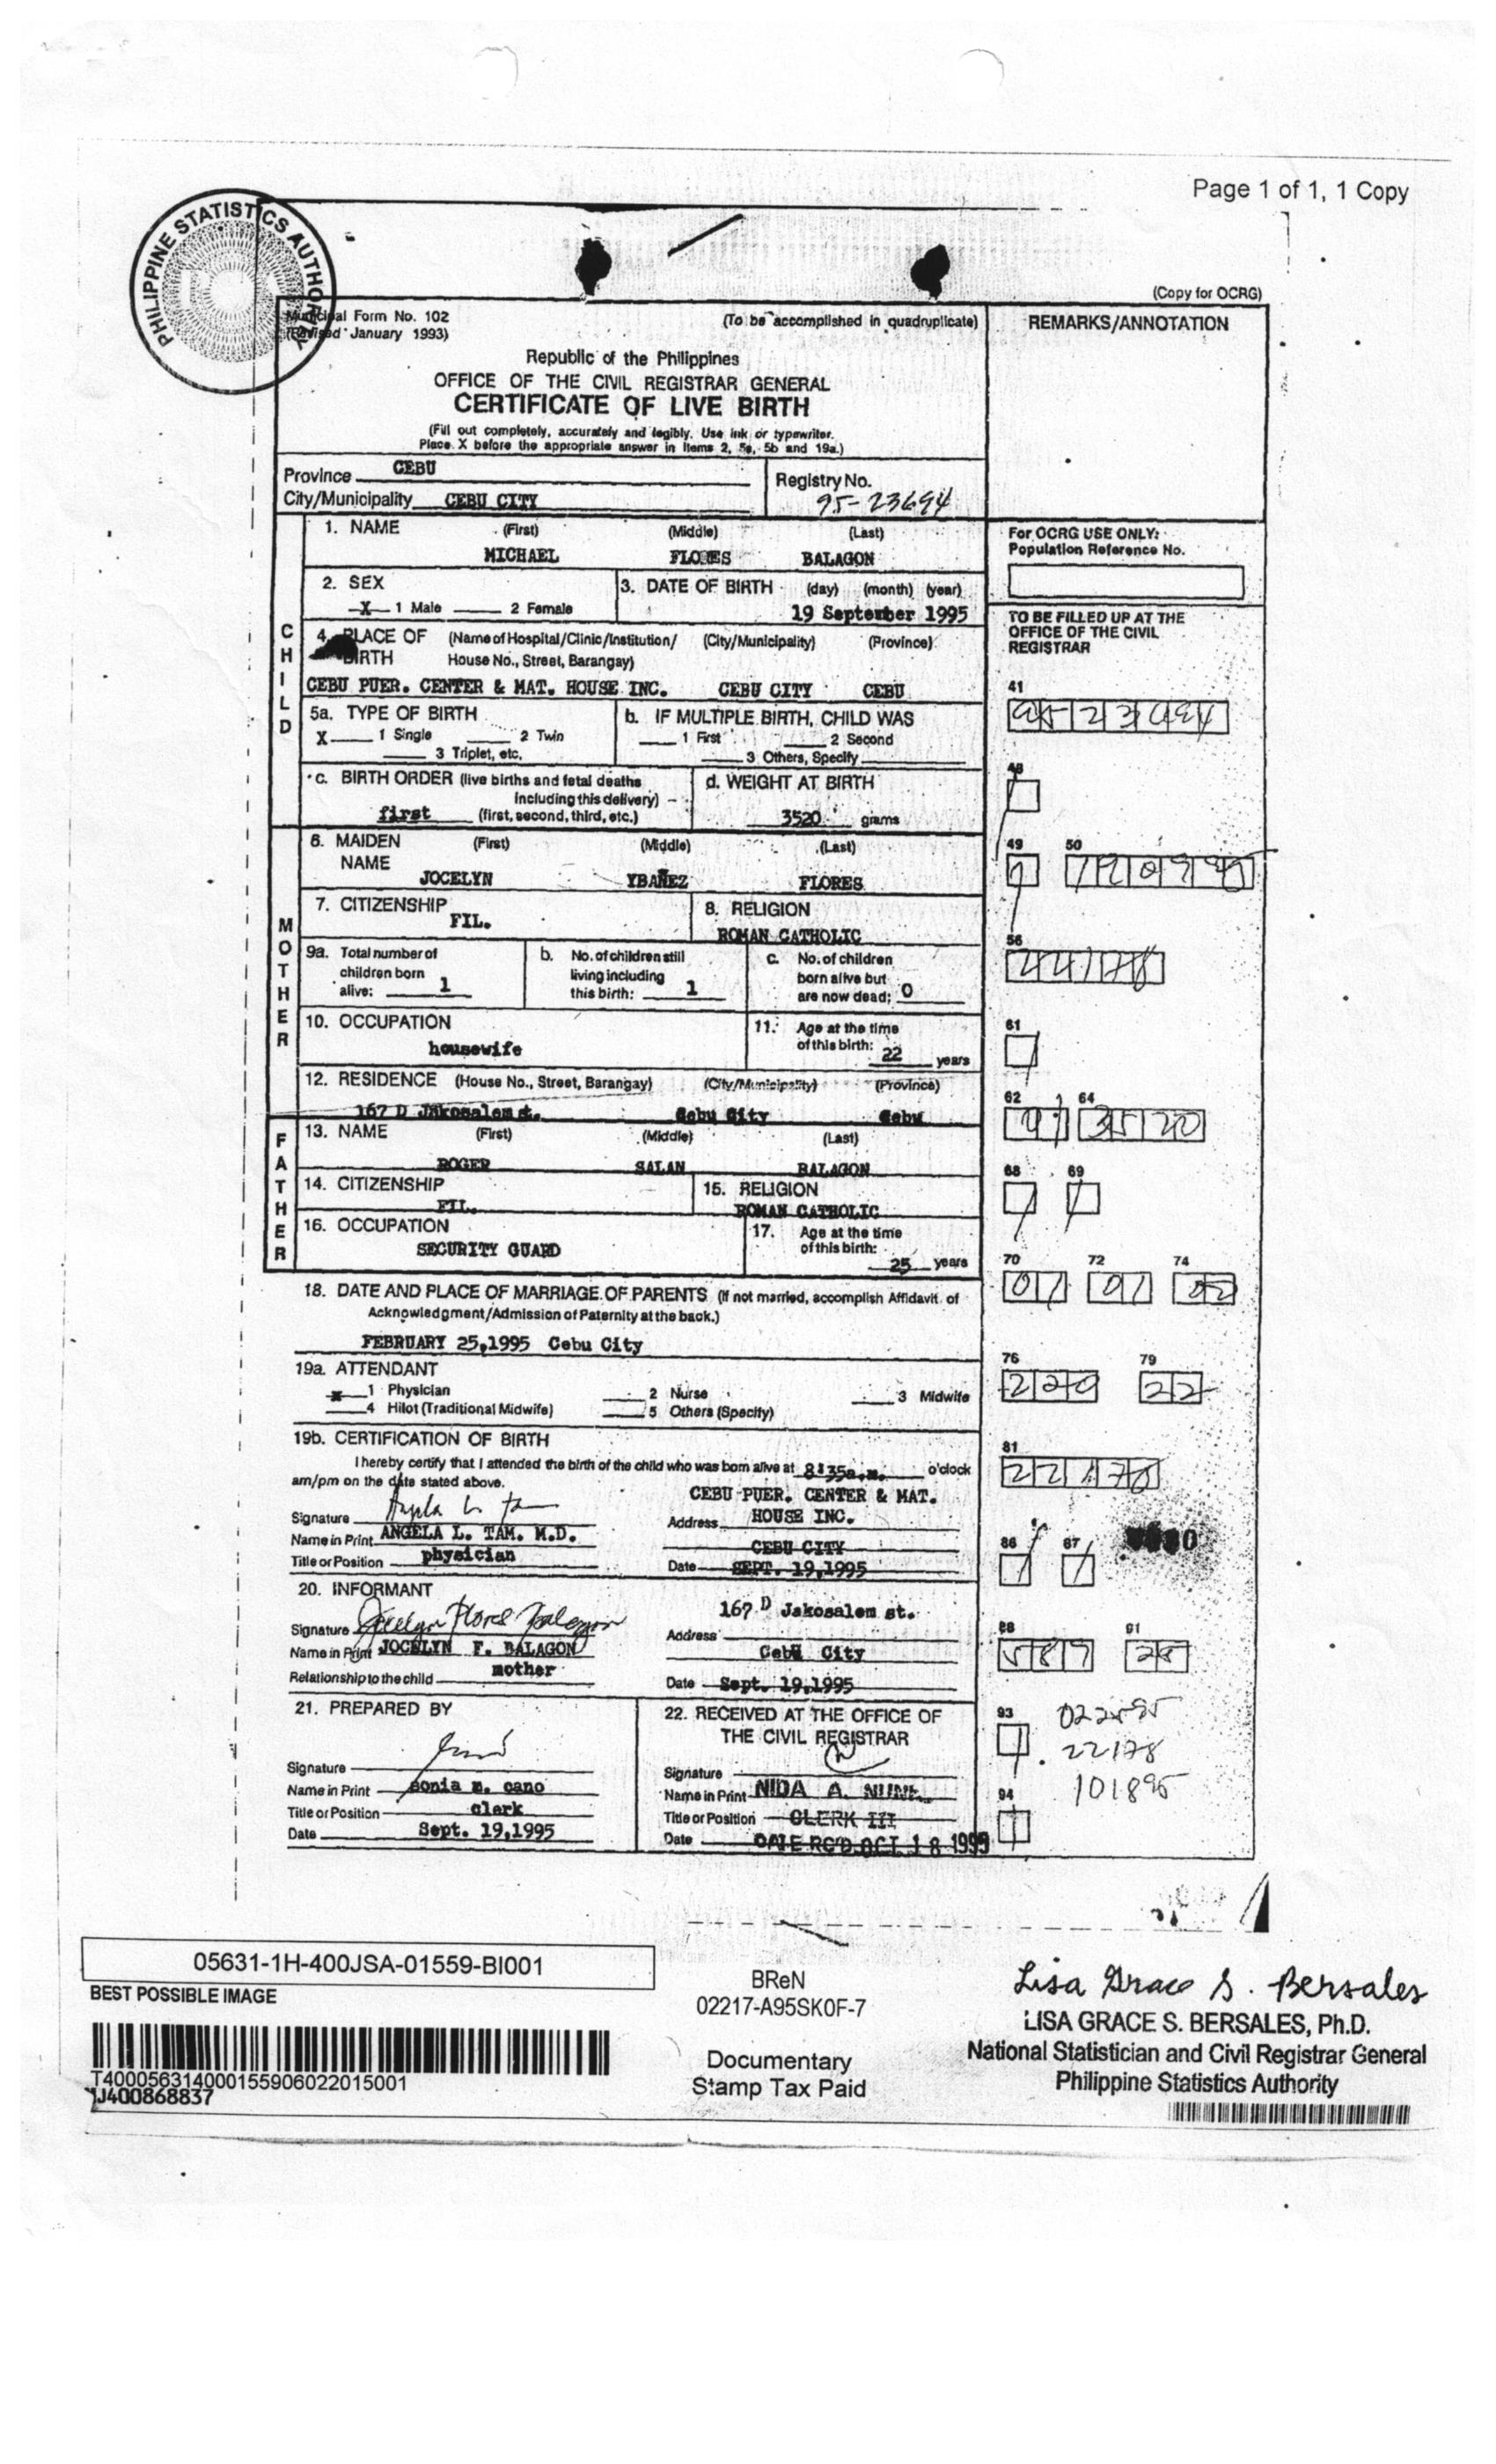 Page 1 of 1, 1 Copy
PHILIPPINE STATISTICS AUTHORITY
(Copy for OCRG)
Municipal Form No. 102
(Revised January 1993)
(To be accomplished in quadruplicate)
REMARKS/ANNOTATION
Republic of the Philippines
OFFICE OF THE CIVIL REGISTRAR GENERAL
CERTIFICATE OF LIVE BIRTH
(Fill out completely, accurately and legibly. Use ink or typewriter.
Place X before the appropriate answer in Items 2, 5a, 5b and 19a.)
Province CEBU
City/Municipality CEBU CITY
Registry No.
95-23694
1. NAME (First) (Middle) (Last)
MICHAEL FLORES BALAGON
For OCRG USE ONLY:
Population Reference No.
2. SEX
X 1 Male 2 Female
3. DATE OF BIRTH (day) (month) (year)
19 September 1995
TO BE FILLED UP AT THE
OFFICE OF THE CIVIL
REGISTRAR
CHILD
4. PLACE OF BIRTH (Name of Hospital/Clinic/Institution/ (City/Municipality) (Province)
House No., Street, Barangay)
CEBU PUER. CENTER & MAT. HOUSE INC. CEBU CITY CEBU
41
5a. TYPE OF BIRTH
X 1 Single 2 Twin
3 Triplet, etc.
b. IF MULTIPLE BIRTH, CHILD WAS
1 First 2 Second
3 Others, Specify
c. BIRTH ORDER (live births and fetal deaths
including this delivery)
first (first, second, third, etc.)
d. WEIGHT AT BIRTH
3520 grams
MOTHER
6. MAIDEN NAME (First) (Middle) (Last)
JOCELYN YBAÑEZ FLORES
49 50
7. CITIZENSHIP
FIL.
8. RELIGION
ROMAN CATHOLIC
9a. Total number of
children born
alive: 1
b. No. of children still
living including
this birth: 1
c. No. of children
born alive but
are now dead: 0
56
10. OCCUPATION
housewife
11. Age at the time
of this birth:
22 years
61
12. RESIDENCE (House No., Street, Barangay) (City/Municipality) (Province)
167 D Jakosalem st. Cebu City Cebu
62 64
FATHER
13. NAME (First) (Middle) (Last)
ROGER SALAN BALAGON
14. CITIZENSHIP
FIL.
15. RELIGION
ROMAN CATHOLIC
68 69
16. OCCUPATION
SECURITY GUARD
17. Age at the time
of this birth:
25 years
70 72 74
01 01
18. DATE AND PLACE OF MARRIAGE OF PARENTS (If not married, accomplish Affidavit of
Acknowledgment/Admission of Paternity at the back.)
FEBRUARY 25,1995 Cebu City
19a. ATTENDANT
x 1 Physician 2 Nurse 3 Midwife
4 Hilot (Traditional Midwife) 5 Others (Specify)
76 79
220 22
19b. CERTIFICATION OF BIRTH
I hereby certify that I attended the birth of the child who was born alive at 8:35a.m. o'clock
am/pm on the date stated above.
81
Signature
Name in Print ANGELA L. TAM. M.D.
Title or Position physician
CEBU PUER. CENTER & MAT.
Address HOUSE INC.
CEBU CITY
Date SEPT. 19,1995
86 87
20. INFORMANT
Signature Jocelyn Flores Balagon
Name in Print JOCELYN F. BALAGON
Relationship to the child mother
167 D Jakosalem st.
Address
Cebu City
Date Sept. 19,1995
88 91
21. PREPARED BY
Signature
Name in Print sonia m. cano
Title or Position clerk
Date Sept. 19,1995
22. RECEIVED AT THE OFFICE OF
THE CIVIL REGISTRAR
Signature
Name in Print NIDA A.
Title or Position CLERK III
Date DATE RC'D OCT 18 1995
93
022595
22178
101895
94
05631-1H-400JSA-01559-BI001
BEST POSSIBLE IMAGE
T400056314000155906022015001
J400868837
BReN
02217-A95SK0F-7
Documentary
Stamp Tax Paid
Lisa Grace S. Bersales
LISA GRACE S. BERSALES, Ph.D.
National Statistician and Civil Registrar General
Philippine Statistics Authority